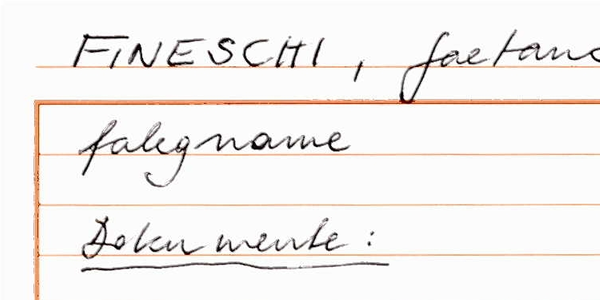 FINESCHI, Gaetano
falegname
Dokumente: